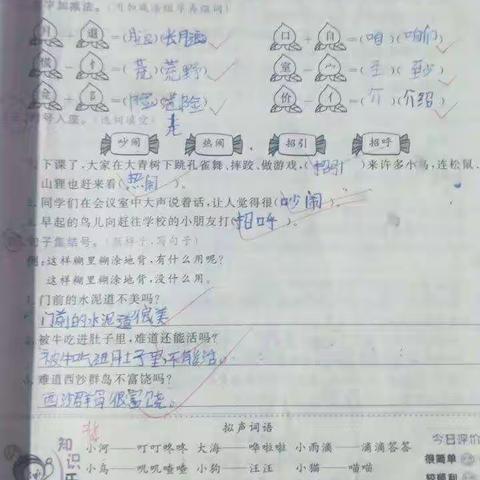 字加减法。（用加减法组字再组词）
月 + 退 =（腿）（长腿） 口 + 自 =（咱）（咱们）
慌 - 忄 =（荒）（荒野） 室 - 宀 =（至）（至少）
=（脸）（ 脸） 价 - 亻 =（介）（介绍）
号入座。（选词填空）
吵闹 热闹 招引 招呼
下课了，大家在大青树下跳孔雀舞、摔跤、做游戏，（招引）来许多小鸟，连松鼠、
山狸也赶来看（热闹）。
同学们在会议室中大声说着话，让人觉得很（吵闹）。
早起的鸟儿向赶往学校的小朋友打（招呼）。
句子集结号。（照样子，写句子）
例：这样糊里糊涂地背，有什么用呢？
这样糊里糊涂地背，没什么用。
1. 门前的水泥道不美吗？
门前的水泥道很美
2. 被牛吃进肚子里，难道还能活吗？
被牛吃进肚子里不能活。
3. 难道西沙群岛不富饶吗？
西沙群岛很富饶。
拟声词语
知识乐
小河——叮叮咚咚 大海——哗啦啦 小雨滴——滴滴答答
小鸟——叽叽喳喳 小狗——汪汪 小猫——喵喵
今日评价
很简单
较顺利